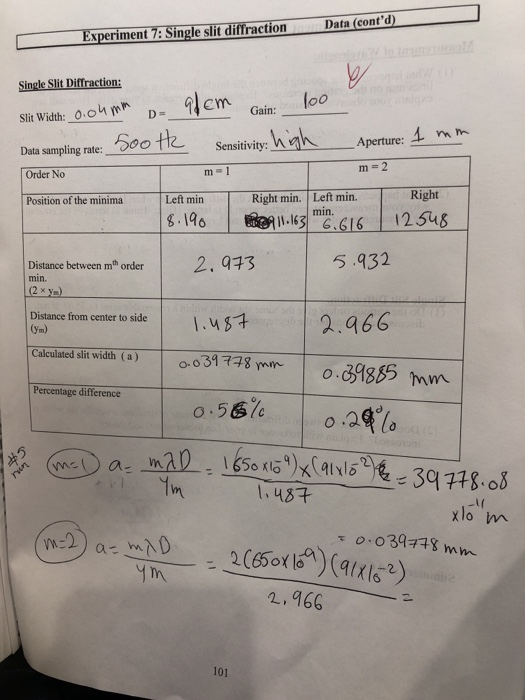 Experiment 7: Single slit diffraction Data (cont'd)
Single Slit Diffraction:
Slit Width: 0.04 mm D = 91 cm Gain: 100
Data sampling rate: 500 Hz Sensitivity: high Aperture: 1 mm
Order No m = 1 m = 2
Position of the minima Left min Right min. Left min. min. Right
8.190 11.163 6.616 12.548
Distance between mth order min. (2 × ym) 2.973 5.932
Distance from center to side (ym) 1.487 2.966
Calculated slit width (a) 0.039778 mm 0.039885 mm
Percentage difference 0.56% 0.29%
#5 run
m=1 a = mλD / ym = 1(650x10-9)x(91x10-2) / 1.487 = 39778.08 x10-11 m
= 0.039778 mm
m=2 a = mλD / ym = 2(650x10-9)(91x10-2) / 2.966 =
101